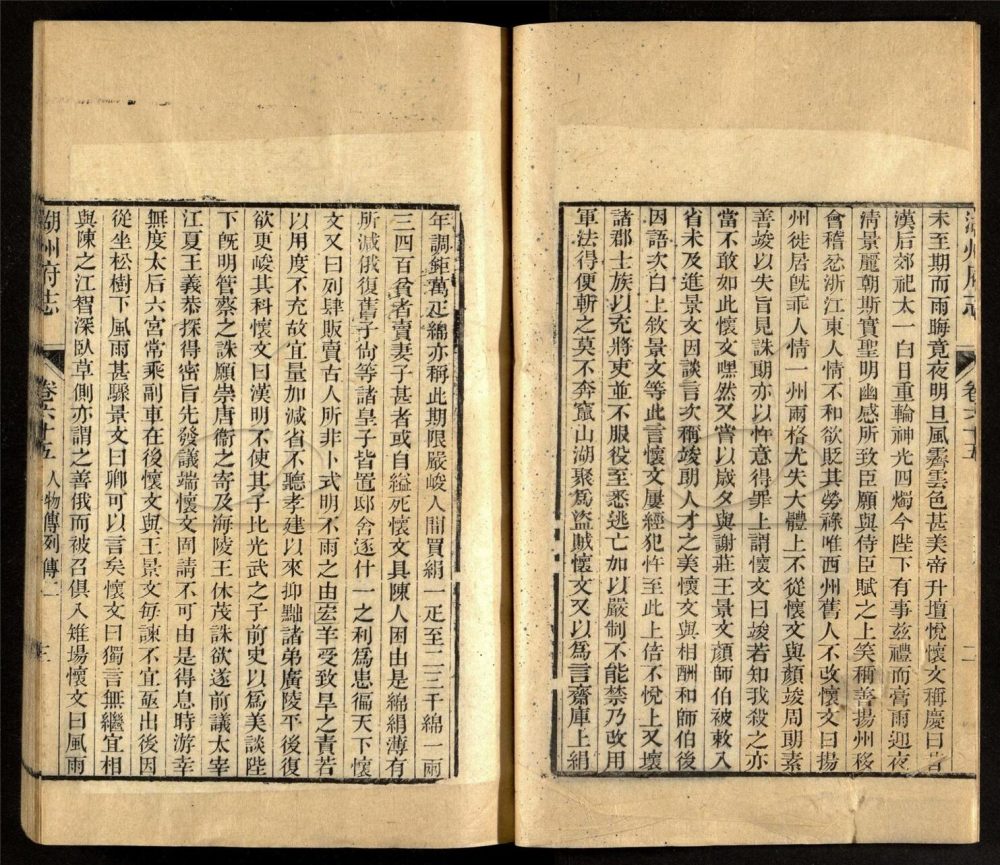 未至期而雨晦竟夜明旦風霽雲色甚美帝升壇悅懷文稱慶曰昔
漢后郊祀太一白日重輪神光四燭今陛下有事茲禮而膏雨迎夜
清景麗朝斯實聖明幽感所致臣願與侍臣賦之上笑稱善揚州移
會稽忿浙江東人情不和欲貶其勞祿唯西州舊人不改懷文曰揚
州徙居旣乖人情一州兩格尤失大體上不從懷文與顏竣周朗素
善竣以失旨見誅朗亦以忤意得罪上謂懷文曰竣若知我殺之亦
當不敢如此懷文嘿然又嘗以歲夕與謝莊王景文顏師伯被敕入
省未及進景文因談言次稱竣朗人才之美懷文與相酬和師伯後
因語次白上敘景文等此言懷文屢經犯忤至此上倍不悅上又壞
諸郡士族以充將吏並不服役至悉逃亡加以嚴制不能禁乃改用
軍法得便斬之莫不奔竄山湖聚爲盜賊懷文又以爲言齋庫上絹
湖州府志
卷六十五
二
年調鉅萬疋綿亦稱此期限嚴峻人閒買絹一疋至二三千綿一兩
三四百貧者賣妻子甚者或自縊死懷文具陳人困由是綿絹薄有
所減俄復舊子尙等諸皇子皆置邸舍逐什一之利爲患徧天下懷
文又曰列肆販賣古人所非卜式明不雨之由宏羊受致旱之責若
以用度不充故宜量加減省不聽孝建以來抑黜諸弟廣陵平後復
欲更峻其科懷文曰漢明不使其子比光武之子前史以爲美談陛
下旣明管蔡之誅願崇唐衞之寄及海陵王休茂誅欲遂前議太宰
江夏王義恭探得密旨先發議端懷文固請不可由是得息時游幸
無度太后六宮常乘副車在後懷文與王景文每諫不宜亟出後因
從坐松樹下風雨甚驟景文曰卿可以言矣懷文曰獨言無繼宜相
與陳之江智深臥草側亦謂之善俄而被召俱入雉場懷文曰風雨
湖州府志
卷六十五
人物傳列傳二
三